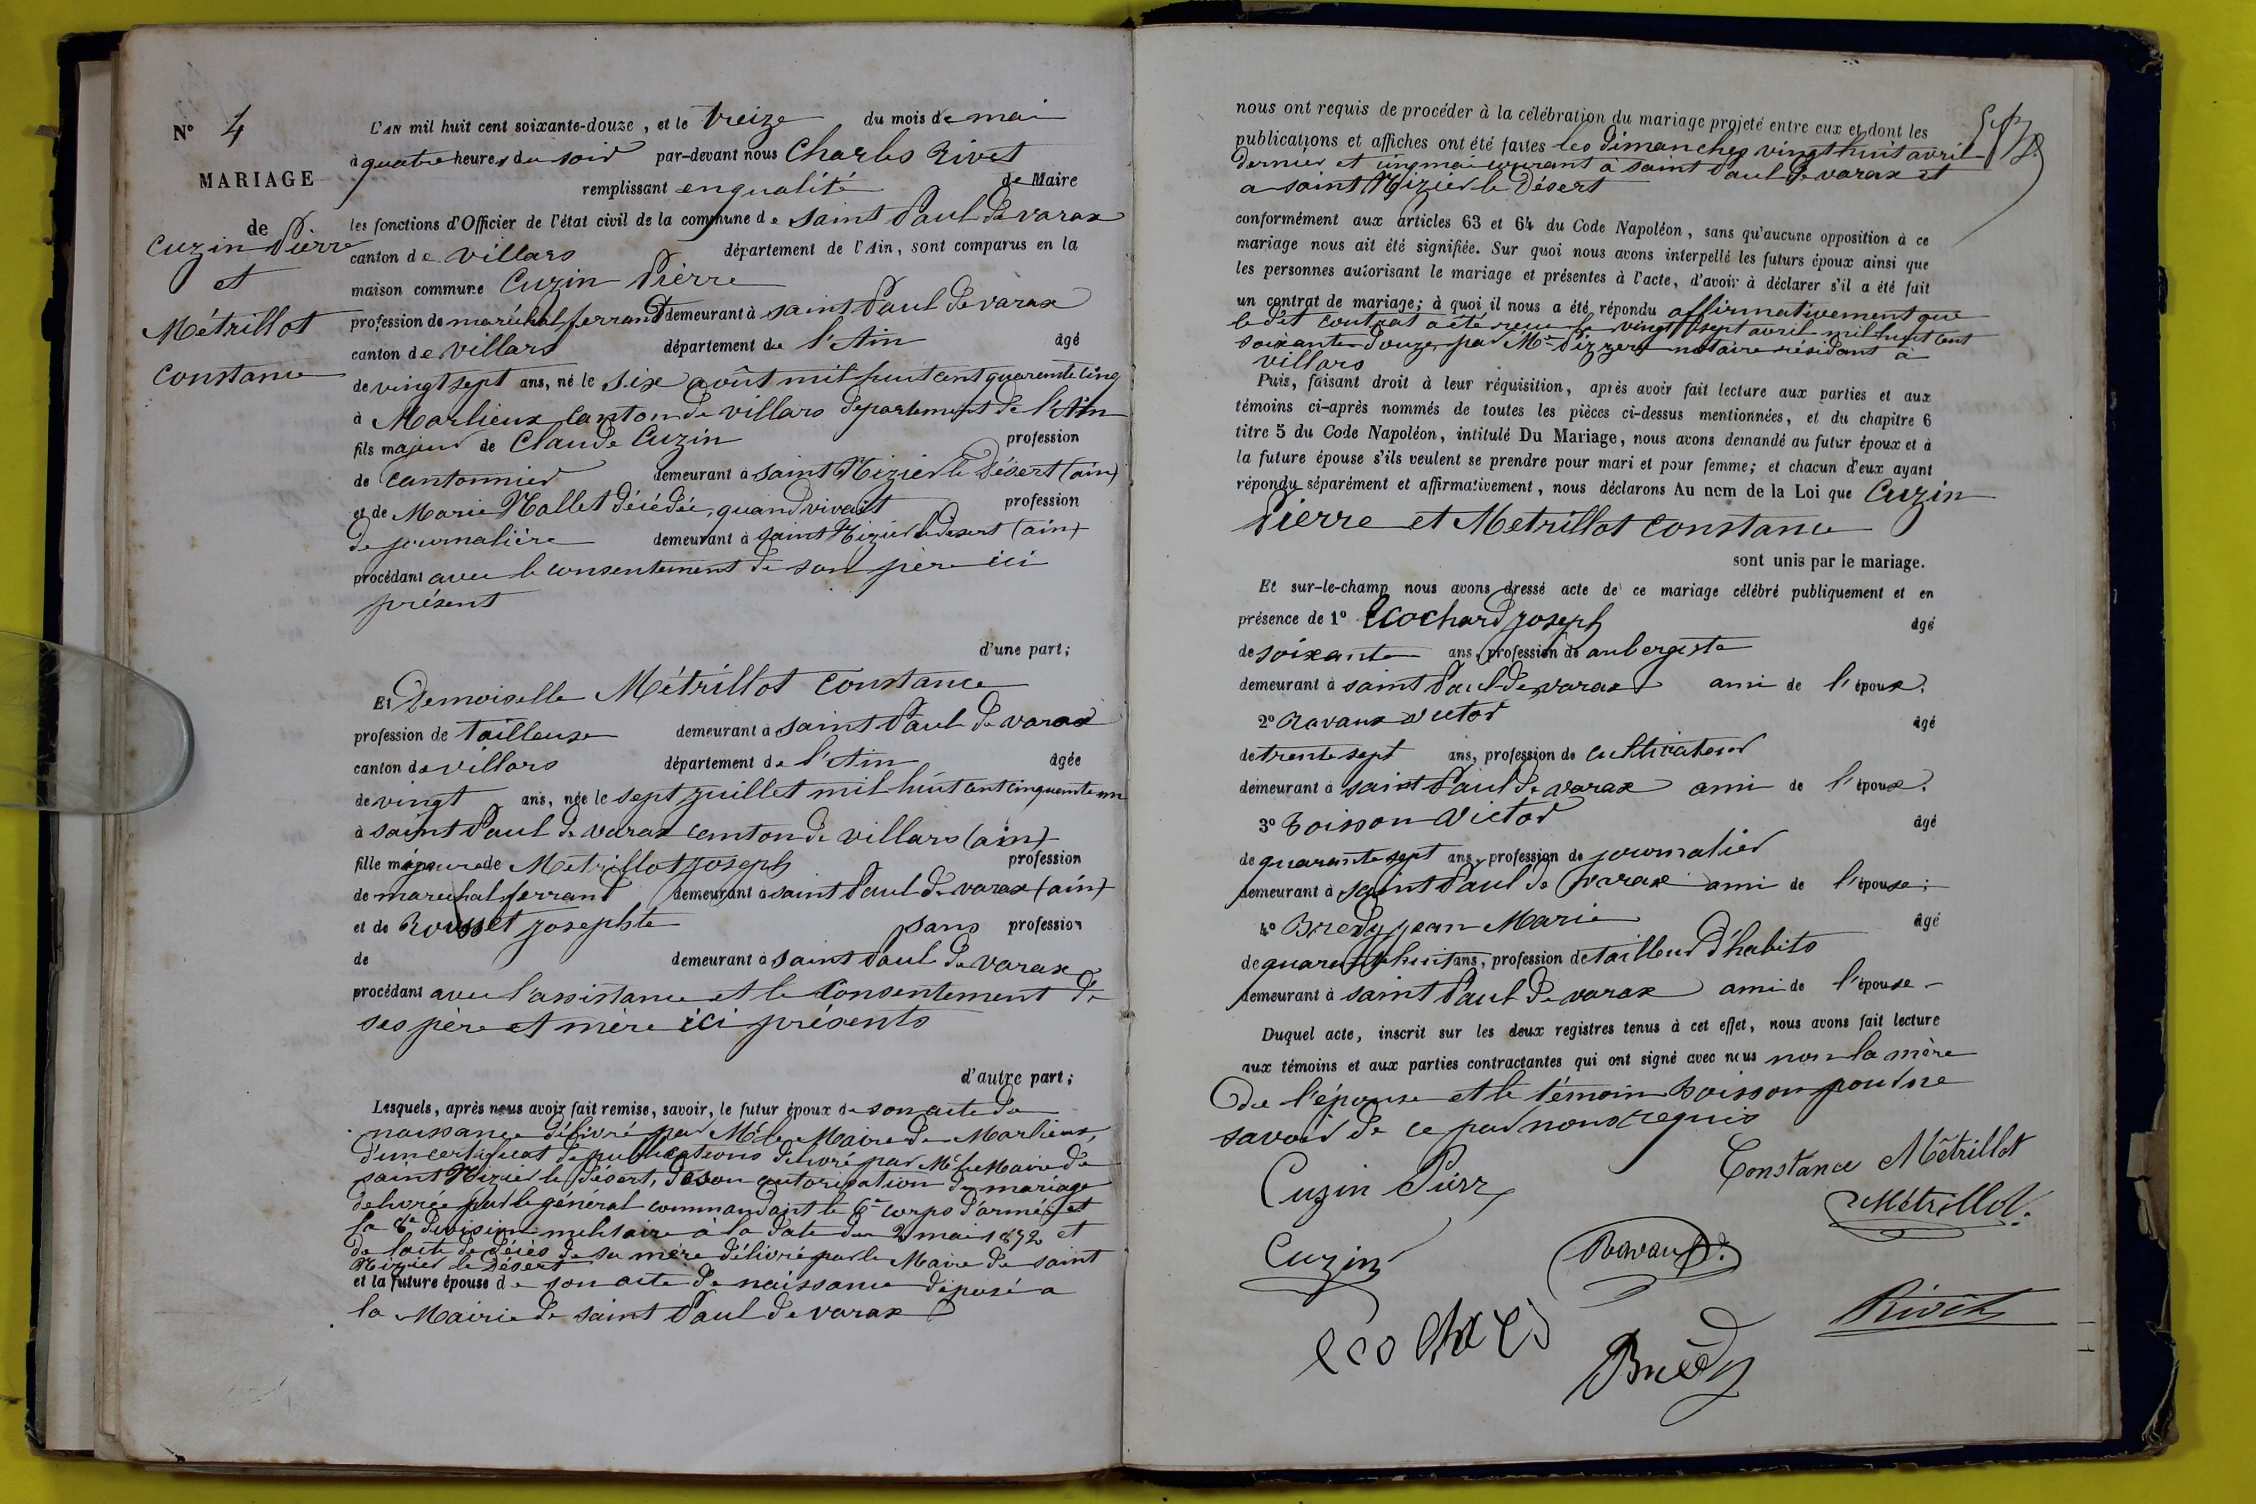 N° 4
MARIAGE
de
Cuzin Pierre
et
Métrillot
Constance
L'AN mil huit cent soixante-douze, et le treize du mois de mai
à quatre heures du soir par-devant nous Charles Rivet
remplissant en qualité de Maire
les fonctions d'Officier de l'état civil de la commune de saint Paul de varax
canton de villars département de l'Ain, sont comparus en la
maison commune Cuzin Pierre
profession de maréchal ferrant demeurant à saint Paul de varax
canton de villars département de l'Ain âgé
de vingt sept ans, né le six août mil huit cent quarante cinq
à Marlieux canton de villars departement de l'Ain
fils majeur de Claude Cuzin profession
de cantonnier demeurant à saint Nizier le Désert (ain)
et de Marie Nallet décédée, quand vivait profession
de journalière demeurant à saint Nizier le desert (ain)
procédant avec le consentement de son père ici
présent
d'une part;
Et Demoiselle Métrillot Constance
profession de tailleuse demeurant à saint Paul de varax
canton de villars département de l'Ain âgée
de vingt ans, née le sept juillet mil huit cent cinquante un
à saint Paul de varax canton de villars (ain)
fille mineure de Metrillot joseph profession
de marechal ferrant demeurant à saint Paul de varax (ain)
et de Rousset josephte sans profession
de demeurant à saint Paul de varax
procédant avec l'assistance et le Consentement de
ses père et mère ici présents
d'autre part;
Lesquels, après nous avoir fait remise, savoir, le futur époux de son acte de
naissance délivré par Mr le Maire de Marlieux,
d'un certificat de publications délivré par Mr le Maire de
saint Nizier le Désert, de son autorisation de mariage
delivrée par le général commandant le 6e corps d'armée et
la 8e division militaire à la date du 2 mai 1872 et
de l'acte de décès de sa mère délivré par le Maire de saint
Nizier le Désert
et la future épouse de son acte de naissance déposé a
la Mairie de saint Paul de varax
nous ont requis de procéder à la célébration du mariage projeté entre eux et dont les
publications et affiches ont été faites les dimanches vingt huit avril
dernier et cinq mai courant à saint Paul de varax et
a saint Nizier le Désert
conformément aux articles 63 et 64 du Code Napoléon, sans qu'aucune opposition à ce
mariage nous ait été signifiée. Sur quoi nous avons interpellé les futurs époux ainsi que
les personnes autorisant le mariage et présentes à l'acte, d'avoir à déclarer s'il a été fait
un contrat de mariage; à quoi il nous a été répondu affirmativement que
le dit contrat a été reçu le vingt sept avril mil huit cent
soixante douze par Me notaire résidant à
villars
Puis, faisant droit à leur réquisition, après avoir fait lecture aux parties et aux
témoins ci-après nommés de toutes les pièces ci-dessus mentionnées, et du chapitre 6
titre 5 du Code Napoléon, intitulé Du Mariage, nous avons demandé au futur époux et à
la future épouse s'ils veulent se prendre pour mari et pour femme; et chacun d'eux ayant
répondu séparément et affirmativement, nous déclarons Au nom de la Loi que Cuzin
Pierre et Metrillot Constance
sont unis par le mariage.
Et sur-le-champ nous avons dressé acte de ce mariage célébré publiquement et en
présence de 1° Ecochard joseph âgé
de soixante ans, profession de aubergiste
demeurant à saint Paul de varax ami de l'époux.
2° Ravaux victor âgé
de trente sept ans, profession de cultivateur
demeurant à saint Paul de varax ami de l'époux.
3° Boisson Victor âgé
de quarante sept ans, profession de journalier
demeurant à saint Paul de varax ami de l'épouse;
4° Bredy jean Marie âgé
de quarante huit ans, profession de tailleur d'habits
demeurant à saint Paul de varax ami de l'épouse.
Duquel acte, inscrit sur les deux registres tenus à cet effet, nous avons fait lecture
aux témoins et aux parties contractantes qui ont signé avec nous non la mère
de l'épouse et le témoin Boisson pour ne
savoir de ce par nous requis
Constance Métrillot
Cuzin Pierr
Métrillot
Cuzin
Ravaux
Rivet
ecochard
Bredy